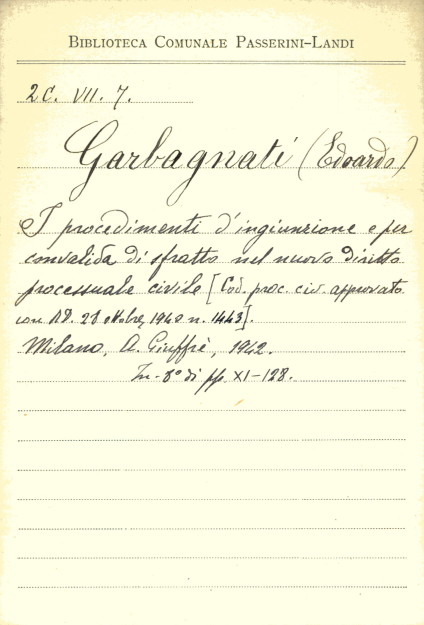 BIBLIOTECA COMUNALE PASSERINI-LANDI
2C. VII. 7.
Garbagnati (Edoardo).
I procedimenti d'ingiunzione e per
convalida di sfratto nel nuovo diritto
processuale civile [Cod. proc. civ. approvato
con RD. 28 ottobre, 1940 n. 1443].
Milano, A. Giuffrè, 1942.
In-8° di pp. XI-128.